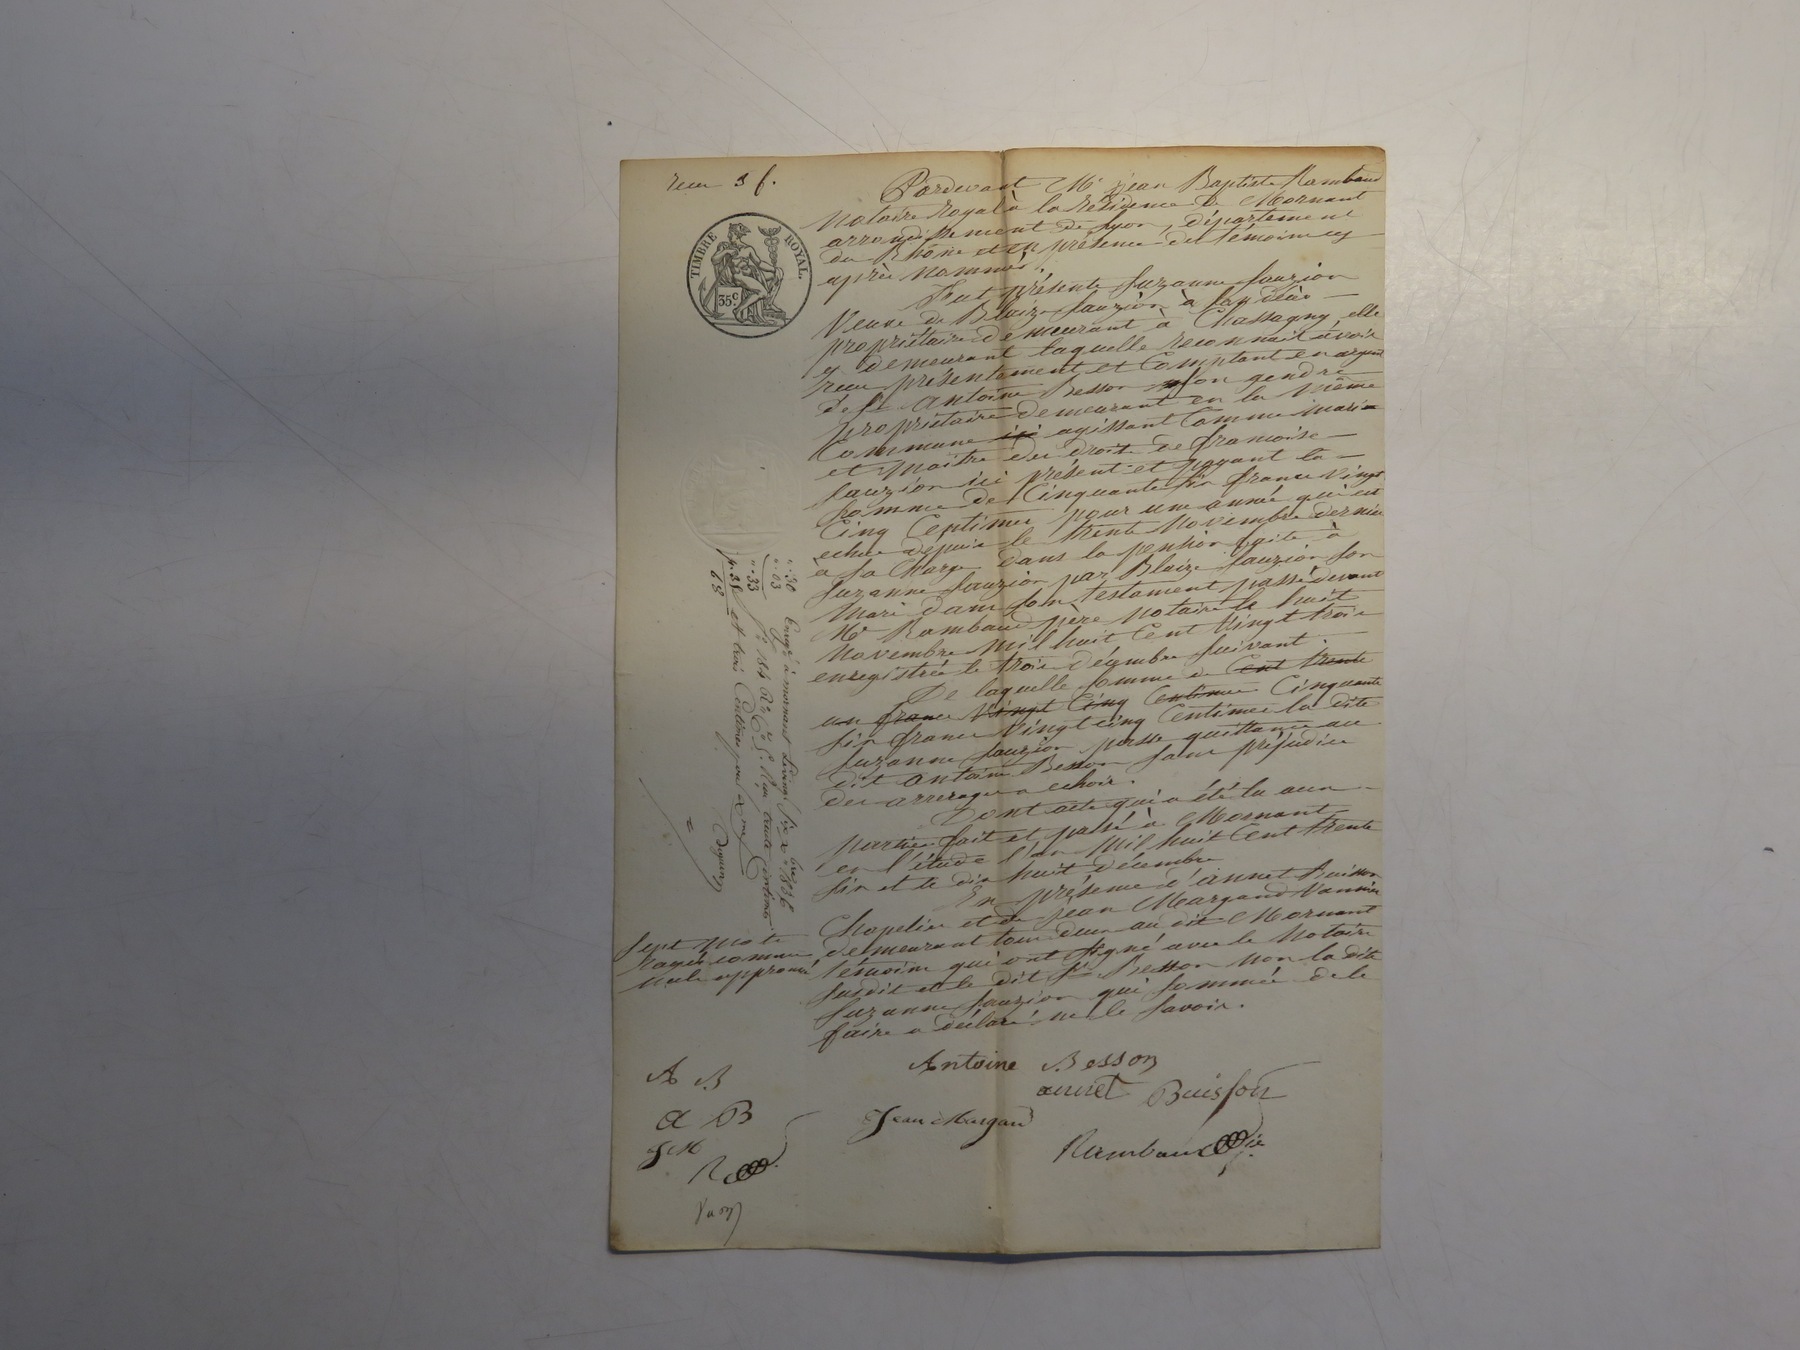 recu 3 f.
TIMBRE ROYAL.
35 c
Pardevant Me Jean Baptiste Rambaud
Notaire Royal à la résidence de Mornant
arrondissement de Lyon, département
du Rhône et en présence des témoins cy
après nommés.
Fut présente Suzanne Fauzion
Veuve de Blaize Fauzion à son décès
propriétaire demeurant à Chassagny, elle
y demeurant laquelle reconnait avoir
recu présentement et Comptant en argent
de Sr Antoine Besson son gendre
propriétaire demeurant en la même
Commune ici agissant Comme mari
et maitre des droits de françoise
Fauzion ici présent et payant la
somme de Cinquante six francs vingt
Cinq Centimes pour une année qui est
echue depuis le trente Novembre dernier
a sa charge dans la pension faite à
Suzanne Fauzion par Blaize Fauzion son
mari dans son testament passé devant
Me Rambaud père Notaire le huit
Novembre mil huit Cent vingt trois
enregistré le trois décembre suivant.
De laquelle somme de Cent trente
un francs vingt Cinq Centimes Cinquante
six francs vingt cinq Centimes la dite
Suzanne Fauzion passe quittance au
dit Antoine Besson sans préjudice
des arrerages a echoir.
Dont acte qui a été lu aux
parties fait et passé à Mornant
en l'étude l'an mil huit Cent trente
six et le dix huit décembre
En présence d'annet Buisson
Chapelier et de Jean Margand Vannier
demeurant tous deux au dit Mornant
témoins qui ont signé avec le Notaire
susdit et le dit Sr Besson non la dite
Suzanne Fauzion qui sommée de le
faire a déclaré ne le savoir.
Sept mots
rayés comme
nuls approuvé
Antoine Besson
annet Buisson
Jean Margand
Rambaud
A B
a B
J M
R
30
03
33
35
68
Enregé à mornant 1836
et trois Centimes